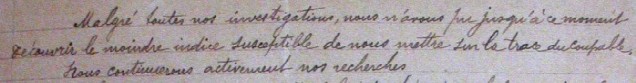 Malgré toutes nos investigations, nous n'avons pu jusqu'à ce moment
découvrir le moindre indice susceptible de nous mettre sur la trace du coupable.
Nous continuerons activement nos recherches